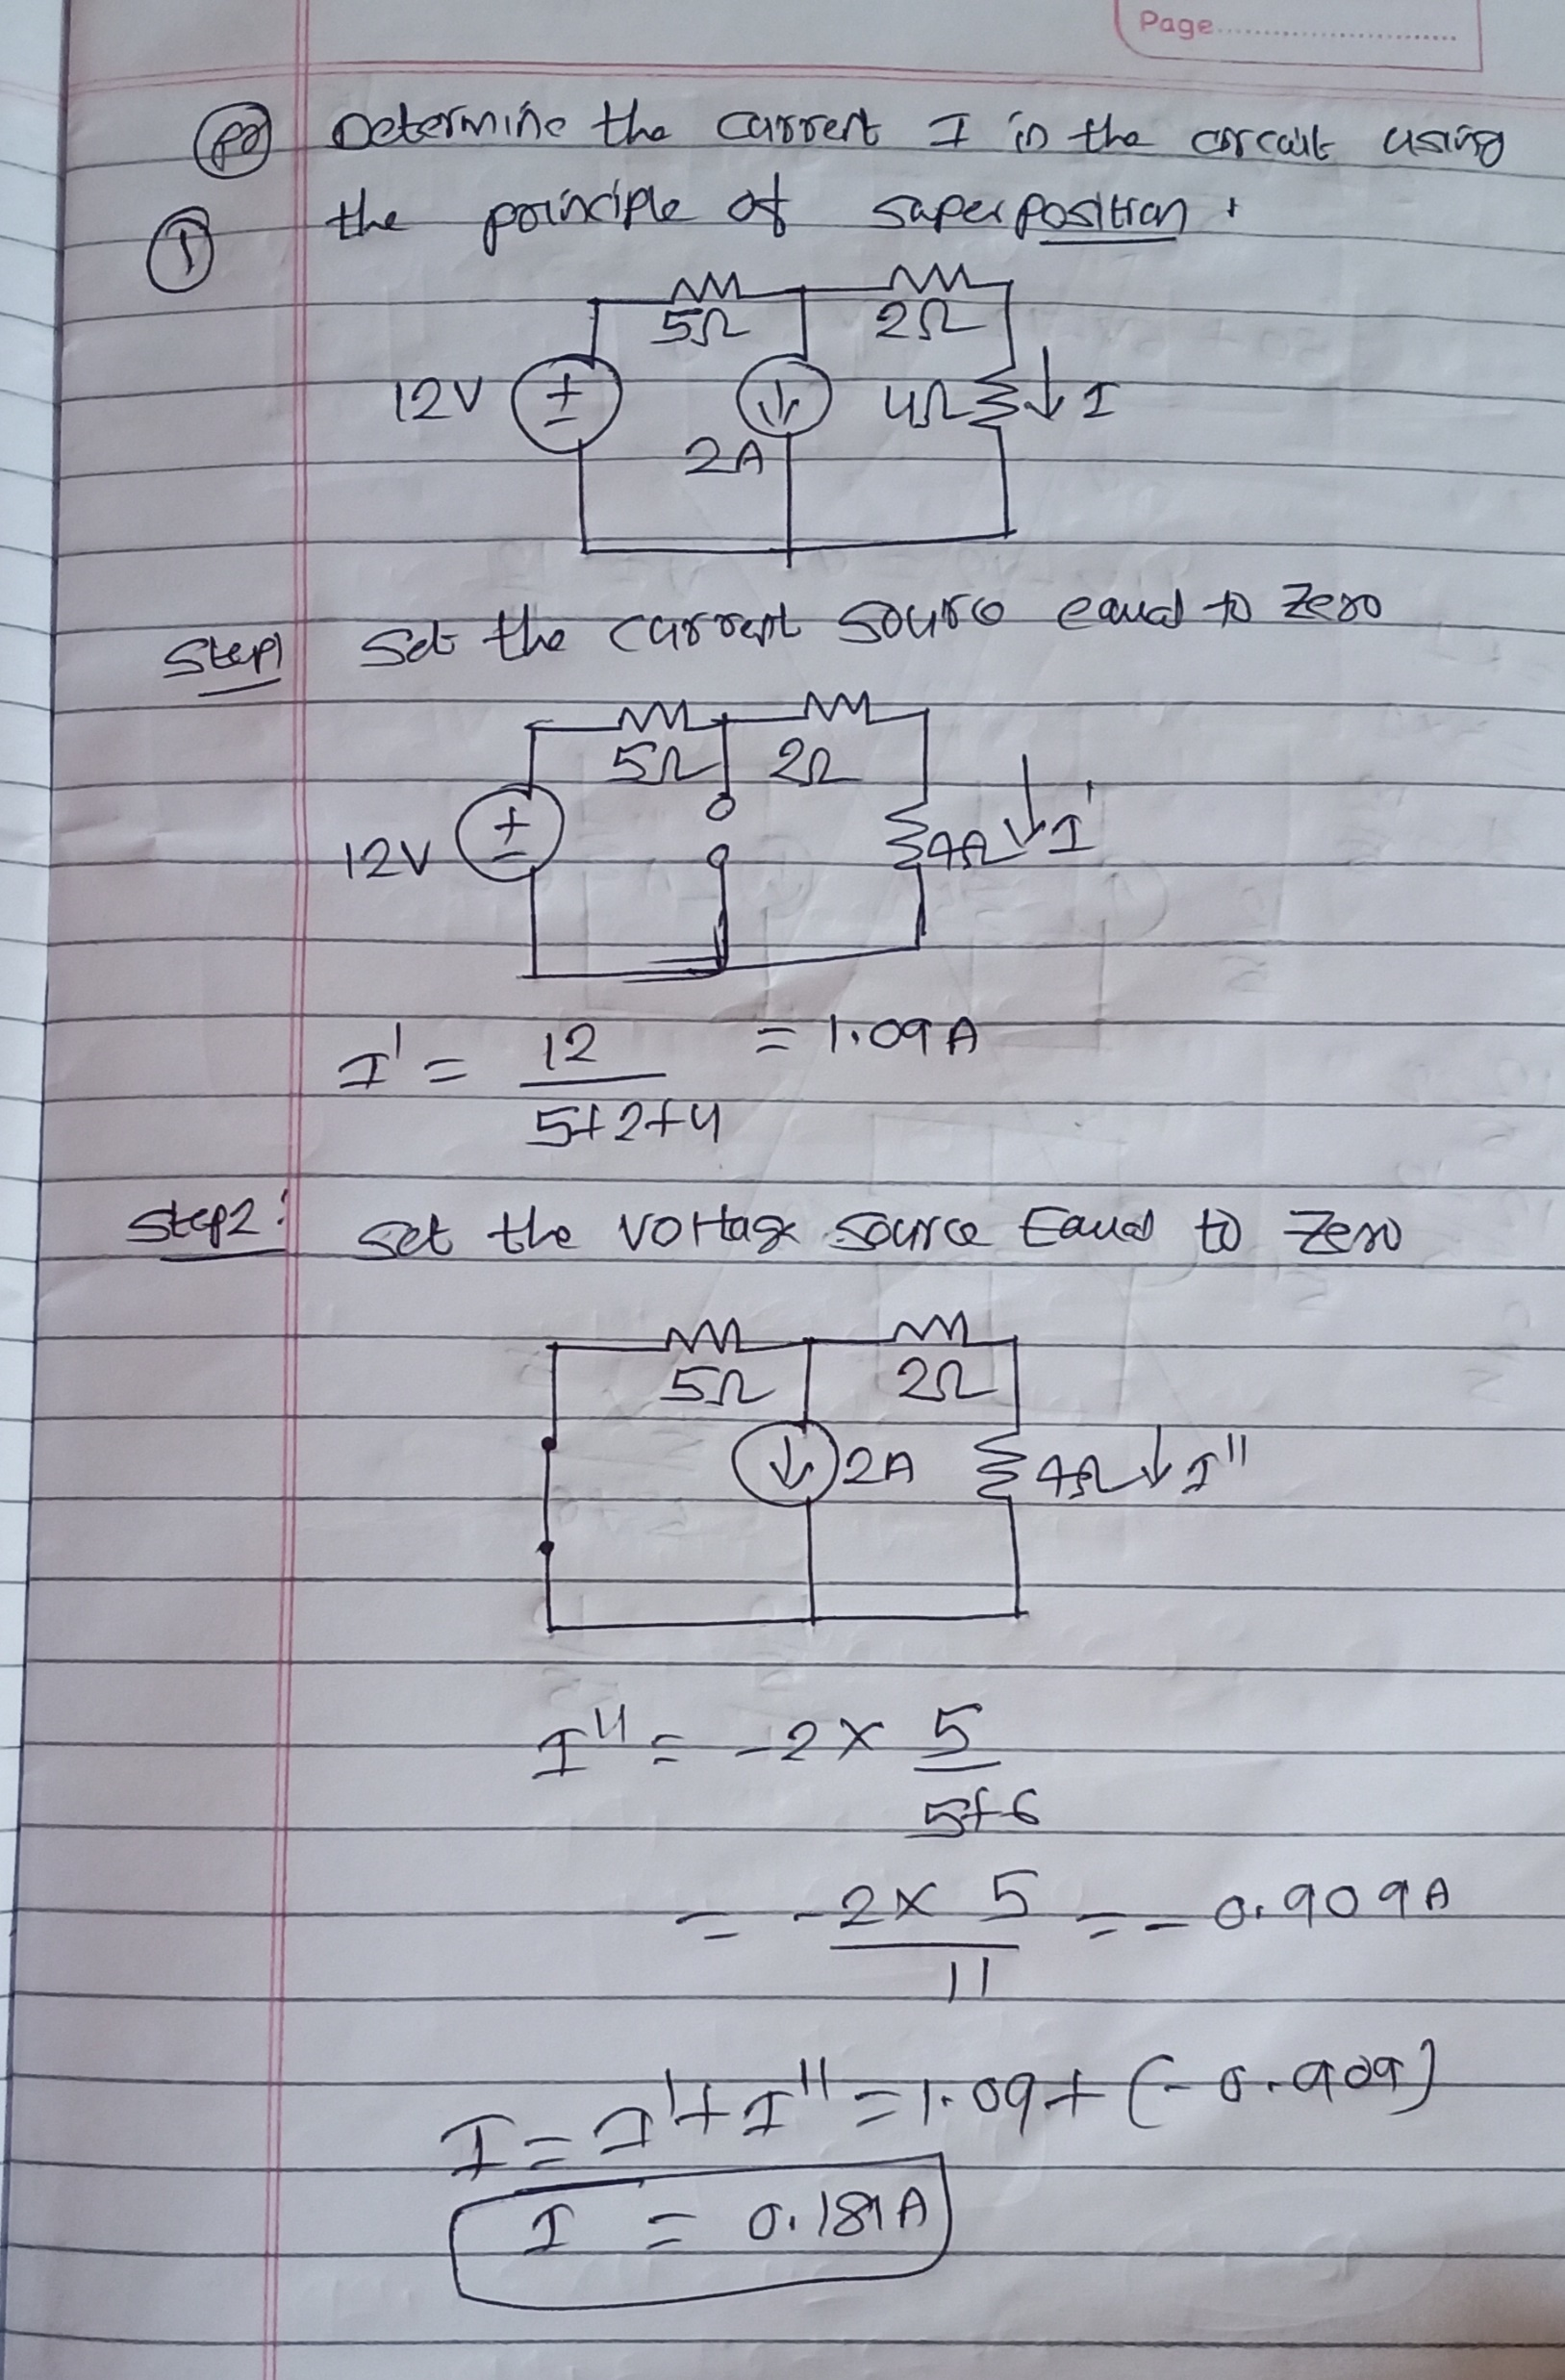 Page
Determine the current I in the circuit using
① the principle of superposition.
5Ω 2Ω
12V + - 4Ω ↓ I
2A
Step1 Set the current source equal to zero
5Ω 2Ω
12V + - 4Ω ↓ I'
I' = 12 / 5+2+4 = 1.09A
Step2: Set the voltage source Equal to zero
5Ω 2Ω
2A 4Ω ↓ I''
I'' = -2 × 5 / 5+6
= -2 × 5 / 11 = -0.909A
I = I' + I'' = 1.09 + (-0.909)
I = 0.181A